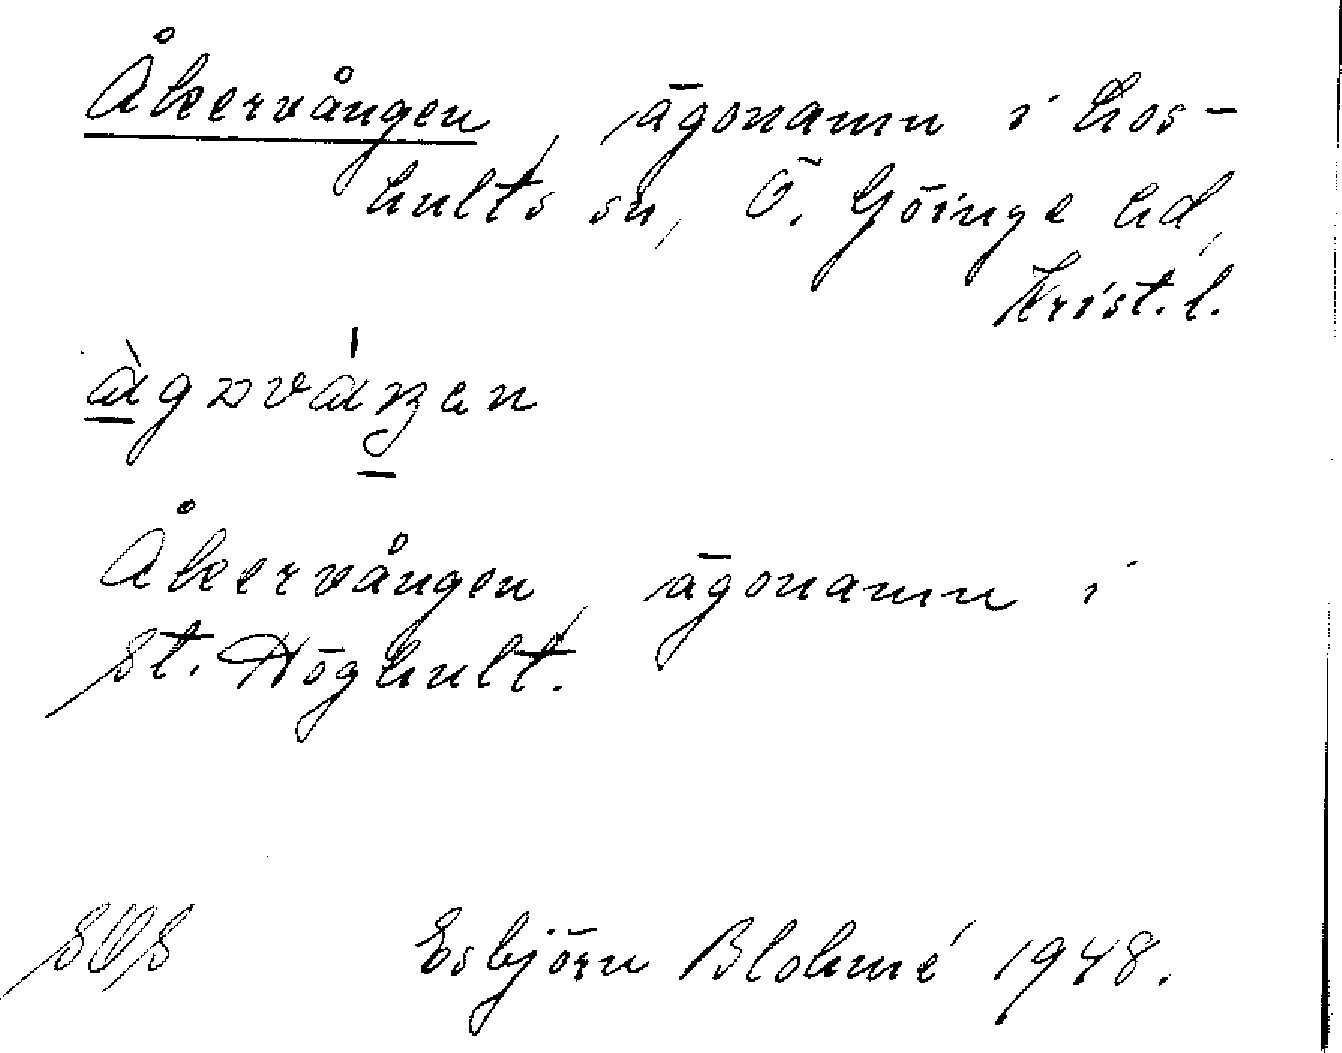 Åkervången, ägonamn i Los-
hults sn, Ö. Göinge hd,
Krist. l.
Åkervången, ägonamn i
St. Höghult.
Esbjörn Blohmé 1948.